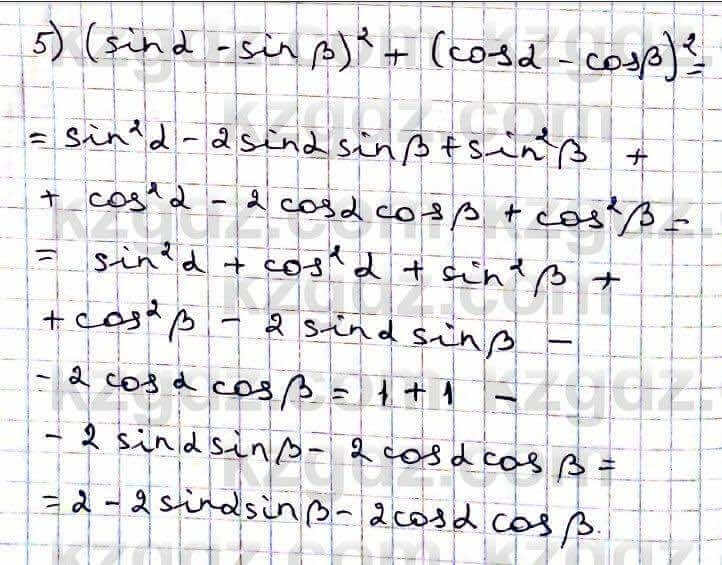 5) (sin α - sin β)² + (cos α - cos β)² =
= sin² α - 2 sin α sin β + sin² β +
+ cos² α - 2 cos α cos β + cos² β -
= sin² α + cos² α + sin² β +
+ cos² β - 2 sin α sin β -
- 2 cos α cos β = 1 + 1 -
- 2 sin α sin β - 2 cos α cos β =
= 2 - 2 sin α sin β - 2 cos α cos β.
kzgdz.com